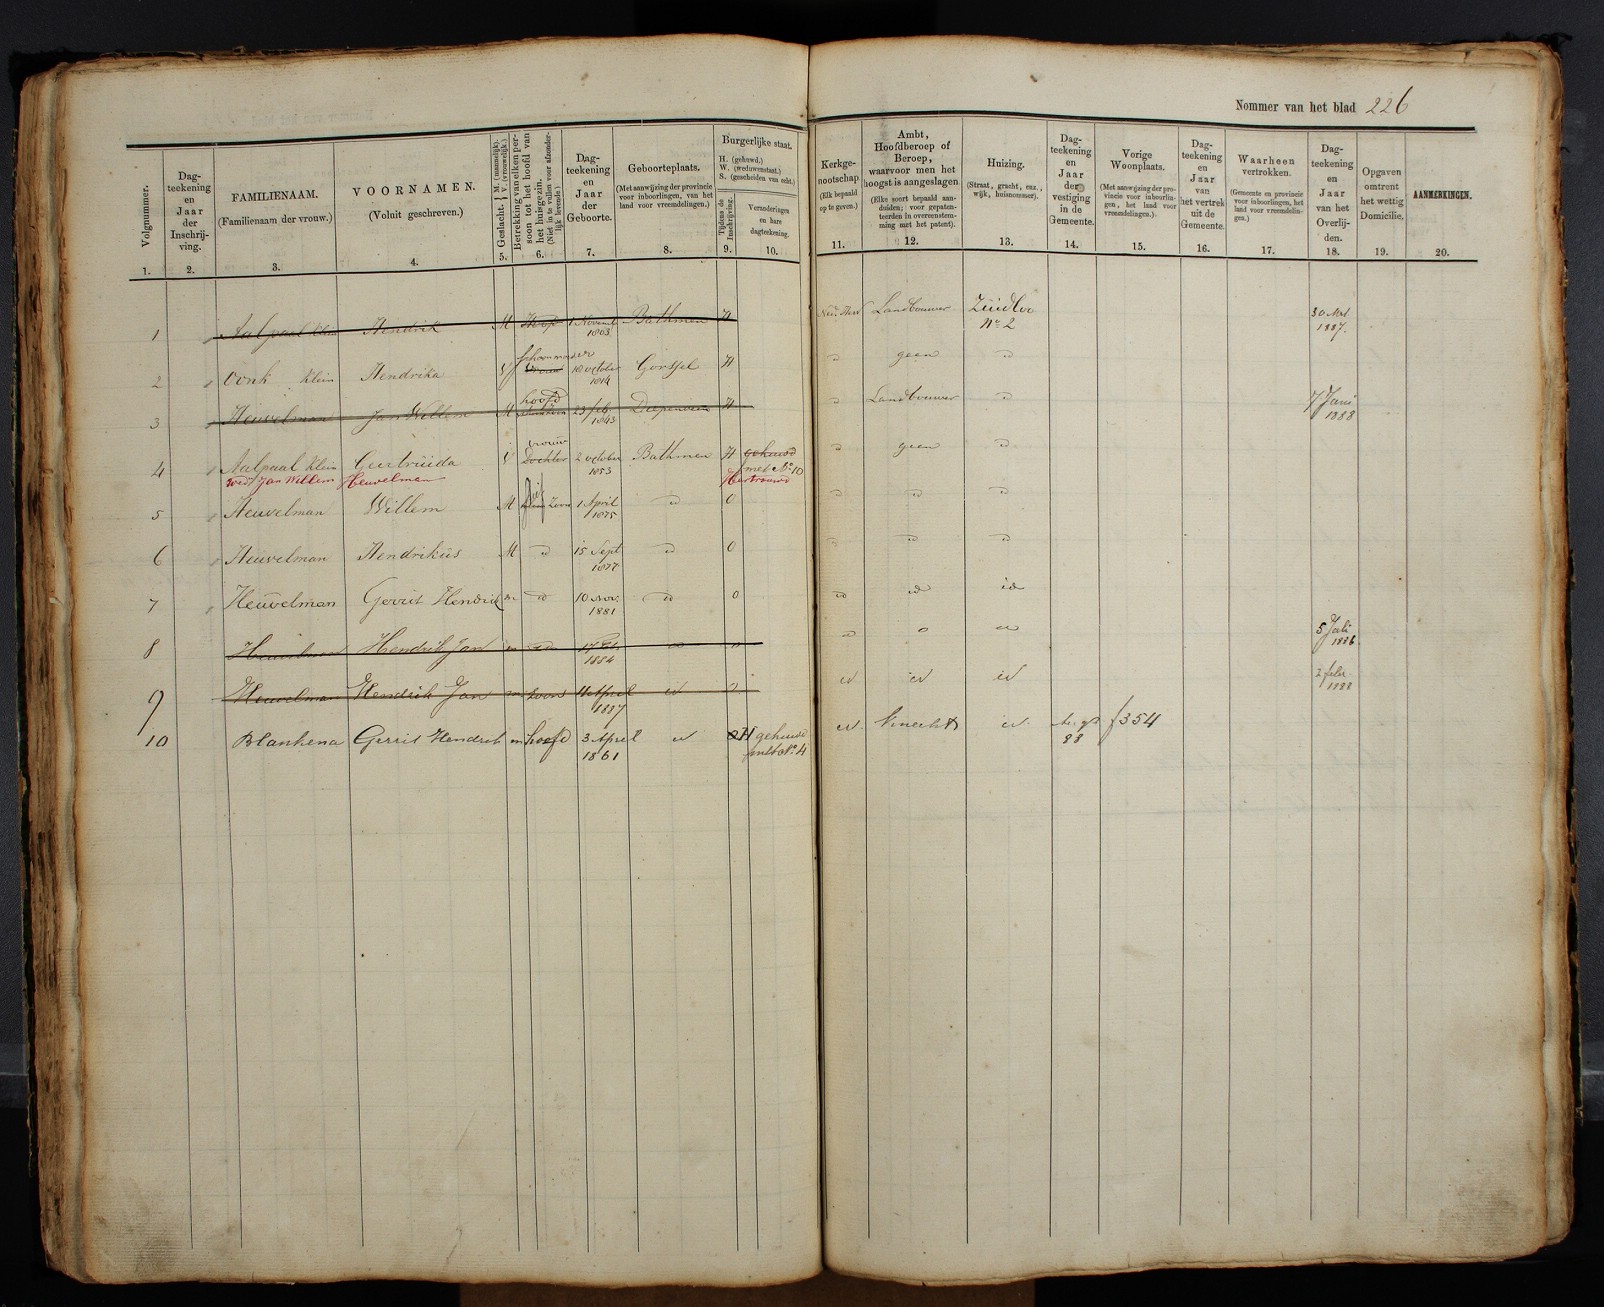 Nommer van het blad 226
Volgnummer. 1.
Dag-
teekening
en
Jaar
der
Inschrij-
ving.
2.
FAMILIENAAM.
(Familienaam der vrouw.)
3.
VOORNAMEN.
(Voluit geschreven.)
4.
Geslacht. M. (mannelijk). V. (vrouwelijk.)
5.
Betrekking van elken per-
soon tot het hoofd van
het huisgezin.
(Niet in te vullen voor afzonder-
lijk levende.)
6.
Dag-
teekening
en
Jaar
der
Geboorte.
7.
Geboorteplaats.
(Met aanwijzing der provincie
voor inboorlingen, van het
land voor vreemdelingen.)
8.
Burgerlijke staat.
H. (gehuwd.)
W. (weduwenstaat.)
S. (gescheiden van echt.)
Tijdens de
Inschrijving.
9.
Veranderingen
en hare
dagteekening.
10.
Kerkge-
nootschap
(Elk bepaald
op te geven.)
11.
Ambt,
Hoofdberoep of
Beroep,
waarvoor men het
hoogst is aangeslagen
(Elke soort bepaald aan-
duiden; voor gepaten-
teerden in overeenstem-
ming met het patent).
12.
Huizing.
(Straat, gracht, enz.,
wijk, huisnommer).
13.
Dag-
teekening
en
Jaar
der
vestiging
in de
Gemeente.
14.
Vorige
Woonplaats.
(Met aanwijzing der pro-
vincie voor inboorlin-
gen, het land voor
vreemdelingen.)
15.
Dag-
teekening
en
Jaar
van
het vertrek
uit de
Gemeente.
16.
Waarheen
vertrokken.
(Gemeente en provincie
voor inboorlingen, het
land voor vreemdelin-
gen.)
17.
Dag-
teekening
en
Jaar
van het
Overlij-
den.
18.
Opgaven
omtrent
het wettig
Domicilie.
19.
AANMERKINGEN.
20.
1 Aalpaal Klein Hendrik M Hoofd 1 Novemb Bathmen H Ned. Herv Landbouwer Zuidloo 30 Mei
1803 No 2 1887.
schoonmoeder
2 Oonk Klein Hendrika V Vrouw 10 october Gorssel H geen
1814
hoofd
3 Heuvelman Jan Willem M 23 feb. Diepenveen H Landbouwer 7 Juni
1843 1888
vrouw
4 Aalpaal Klein Geertruida V Dochter 2 october Bathmen H gehuwd geen
1853 met No 10
wed Jan Willem Heuvelman Hertrouwd
5 Heuvelman Willem M Zoon 1 April O
1875
6 Heuvelman Hendrikus M 15 Sept O
1877
7 Heuvelman Gerrit Hendrik m 10 Nov. O id
1881
8 Heuvelman Hendrik Jan m 5 Juli
1884 1886
9 Heuvelman Hendrik Jan m zoon 11 April id id id 2 febr
1887 1888
10 Blankena Gerrit Hendrik m hoofd 3 April id H gehuwd id Knecht id f 354
1861 met No. 4 88